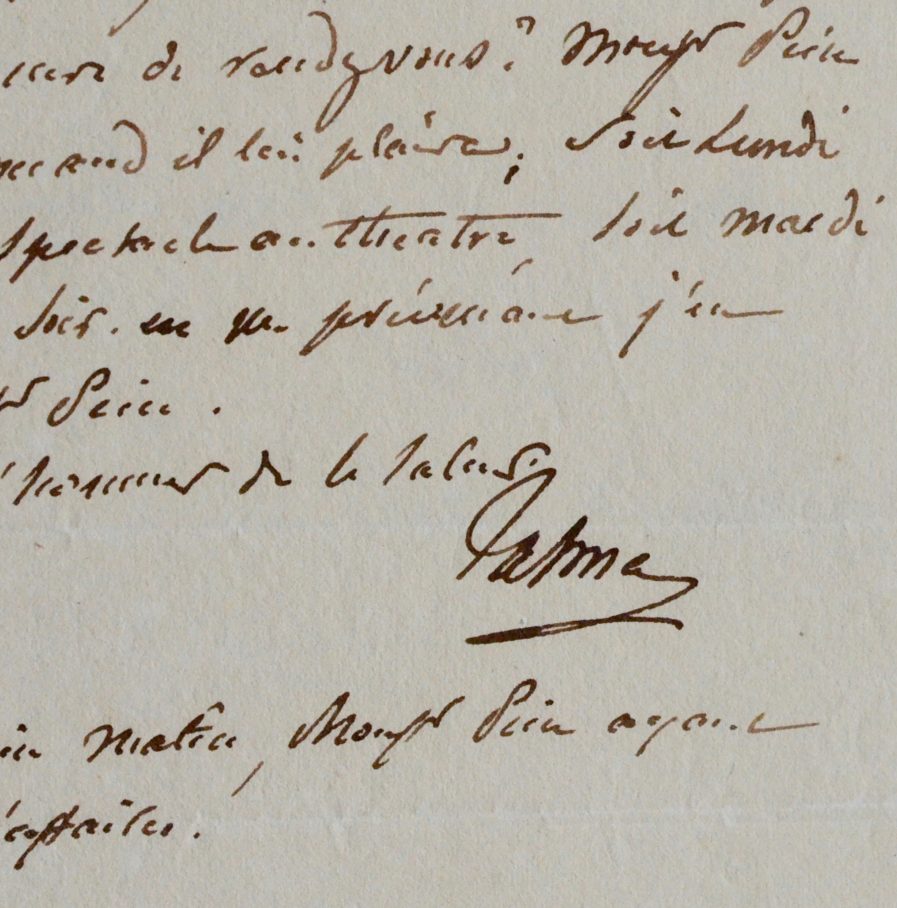 de rendezvous? Monsr Pein
quand il lui plaira; soit Lundi
spectacle au theatre soit mardi
soir. en me prévenant j'en
Pein.
honneur de le saluer.
Talma
matin, Monsr Pein ayant
d'affaires.